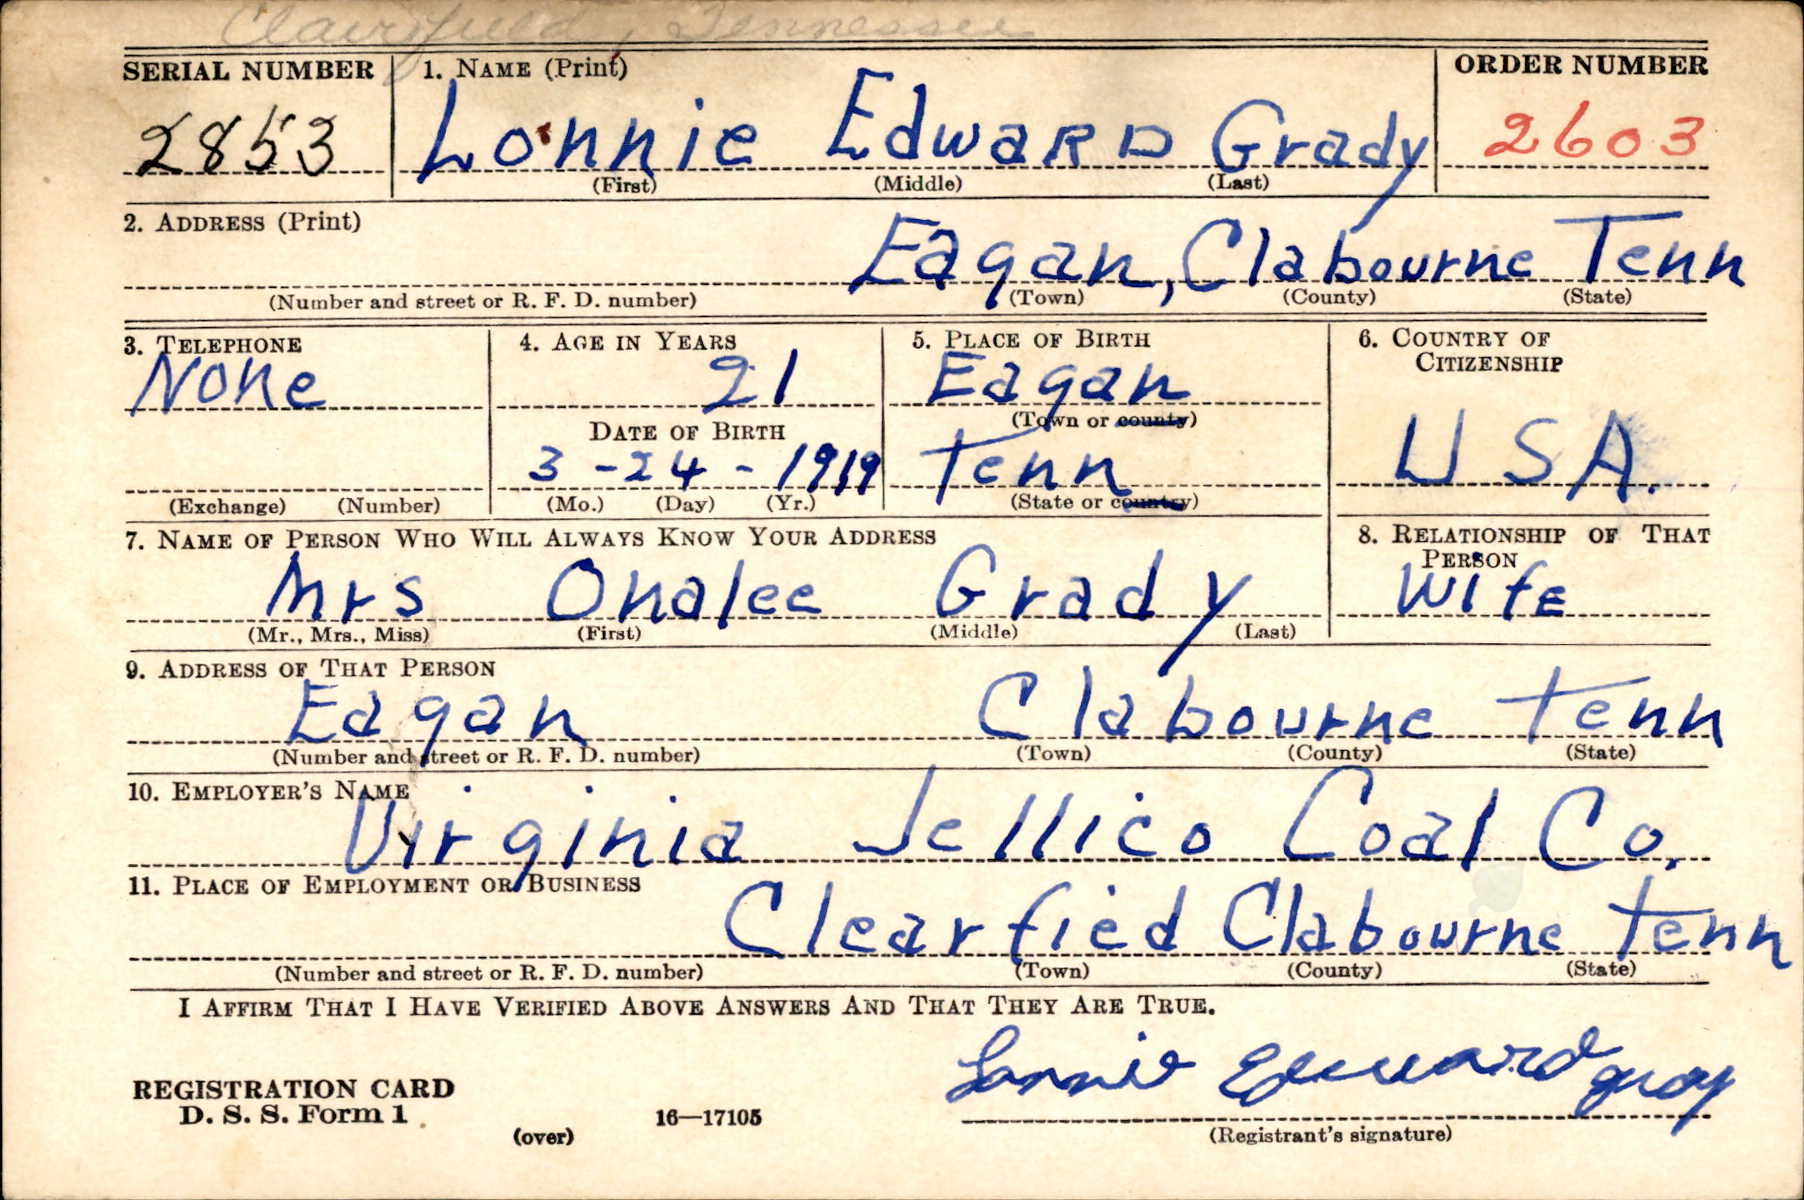 Clairfield, Tennessee
SERIAL NUMBER 1. NAME (Print) ORDER NUMBER
2853 Lonnie Edward Grady 2603
(First) (Middle) (Last)
2. ADDRESS (Print)
Eagan, Clabourne Tenn
(Number and street or R. F. D. number) (Town) (County) (State)
3. TELEPHONE 4. AGE IN YEARS 5. PLACE OF BIRTH 6. COUNTRY OF CITIZENSHIP
None 21 Eagan
(Town or county)
DATE OF BIRTH USA.
3-24-1919 Tenn
(Exchange) (Number) (Mo.) (Day) (Yr.) (State or country)
7. NAME OF PERSON WHO WILL ALWAYS KNOW YOUR ADDRESS 8. RELATIONSHIP OF THAT PERSON
Mrs Onalee Grady Wife
(Mr., Mrs., Miss) (First) (Middle) (Last)
9. ADDRESS OF THAT PERSON
Eagan Clabourne Tenn
(Number and street or R. F. D. number) (Town) (County) (State)
10. EMPLOYER'S NAME
Virginia Jellico Coal Co.
11. PLACE OF EMPLOYMENT OR BUSINESS
Clearfied Clabourne Tenn
(Number and street or R. F. D. number) (Town) (County) (State)
I AFFIRM THAT I HAVE VERIFIED ABOVE ANSWERS AND THAT THEY ARE TRUE.
Lonnie Edward gray
REGISTRATION CARD
D. S. S. Form 1 16—17105
(over) (Registrant's signature)